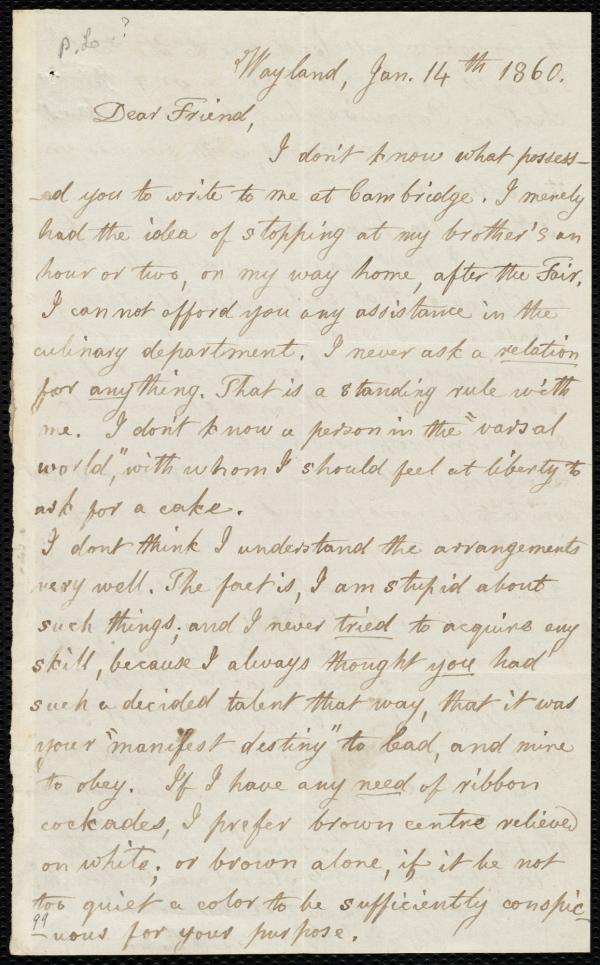 P. L. ?
Wayland, Jan. 14th 1860.
Dear Friend,
I don't know what possess-
-ed you to write to me at Cambridge. I merely
had the idea of stopping at my brother's an
hour or two, on my way home, after the Fair.
I can not afford you any assistance in the
culinary department. I never ask a relation
for anything. That is a standing rule with
me. I don't know a person in the "varsal
world," with whom I should feel at liberty to
ask for a cake.
I dont think I understand the arrangements
very well. The fact is, I am stupid about
such things; and I never tried to acquire any
skill, because I always thought you had
such a decided talent that way, that it was
your "manifest destiny" to lead, and mine
to obey. If I have any need of ribbon
cockades, I prefer brown centre relieved
on white; or brown alone, if it be not
too quiet a color to be sufficiently conspic-
99
-uous for your purpose.